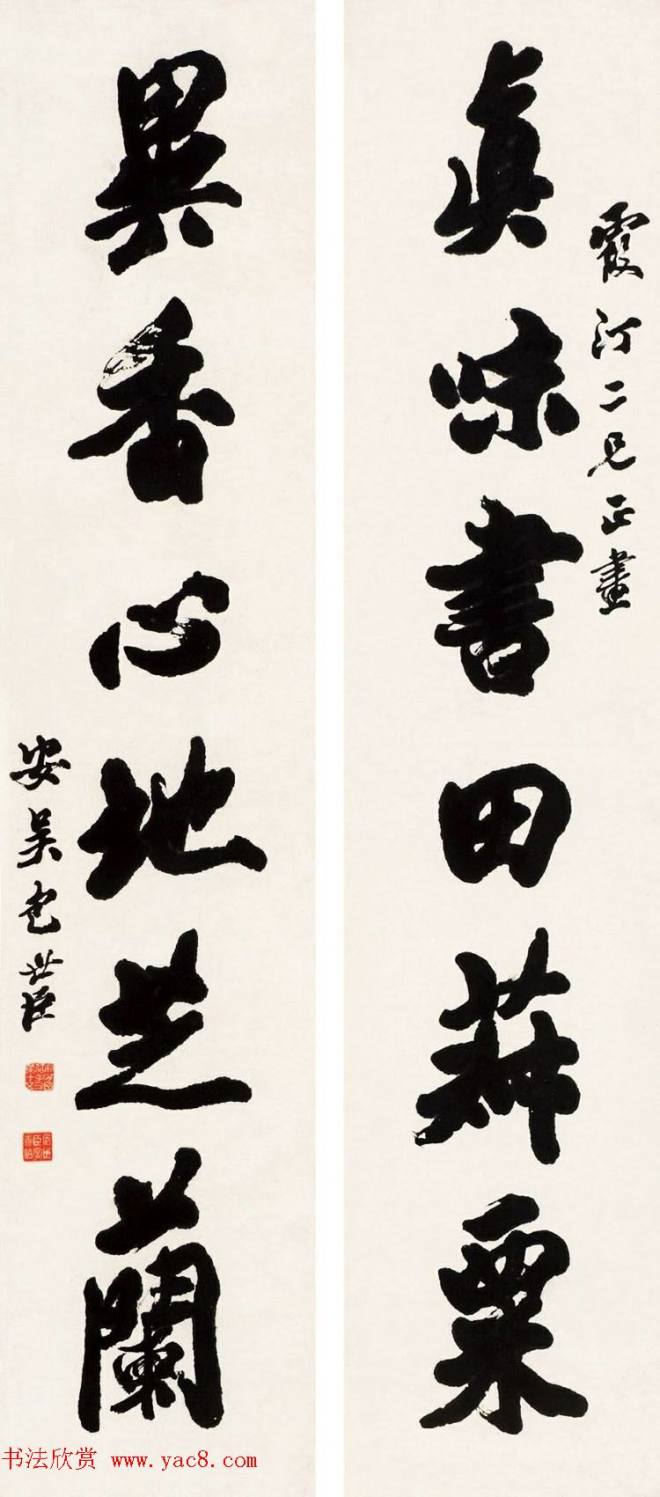 霞汀二兄正畫
眞味書田菽粟
異香心地芝蘭
安吳包世臣
书法欣赏 www.yac8.com